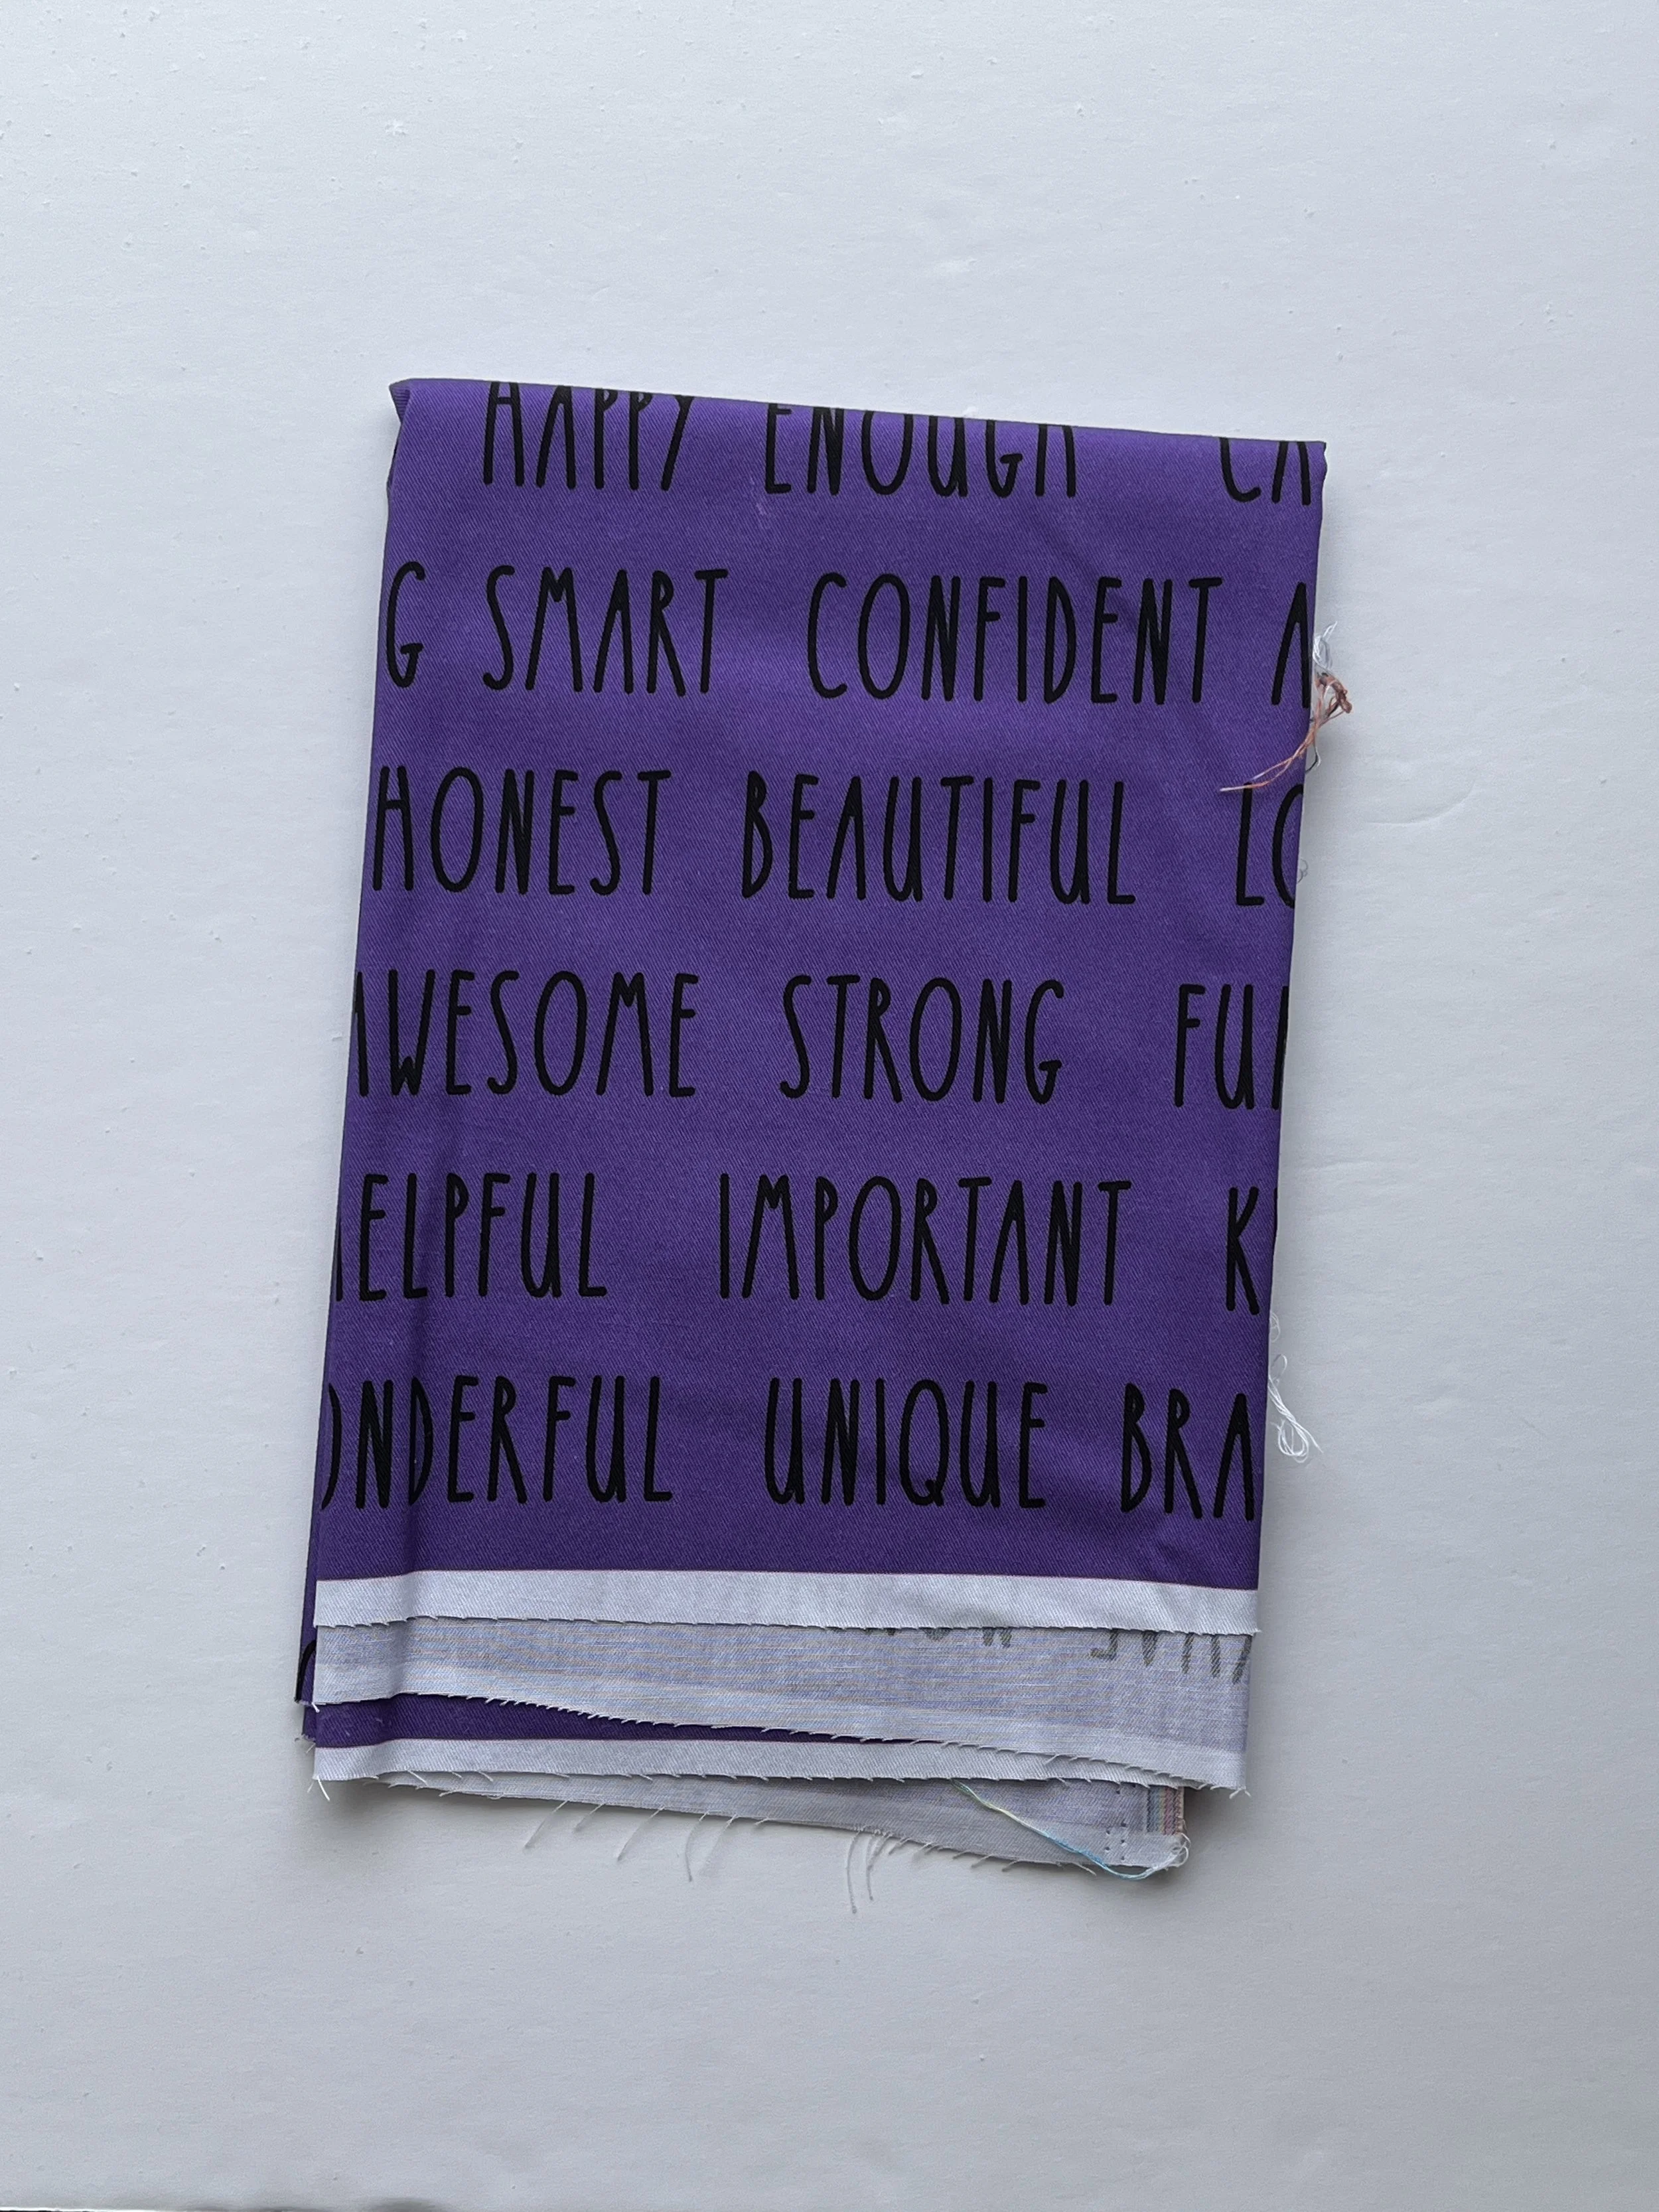 HAPPY ENOUGH CA
G SMART CONFIDENT A
HONEST BEAUTIFUL LO
AWESOME STRONG FUN
HELPFUL IMPORTANT K
ONDERFUL UNIQUE BRA